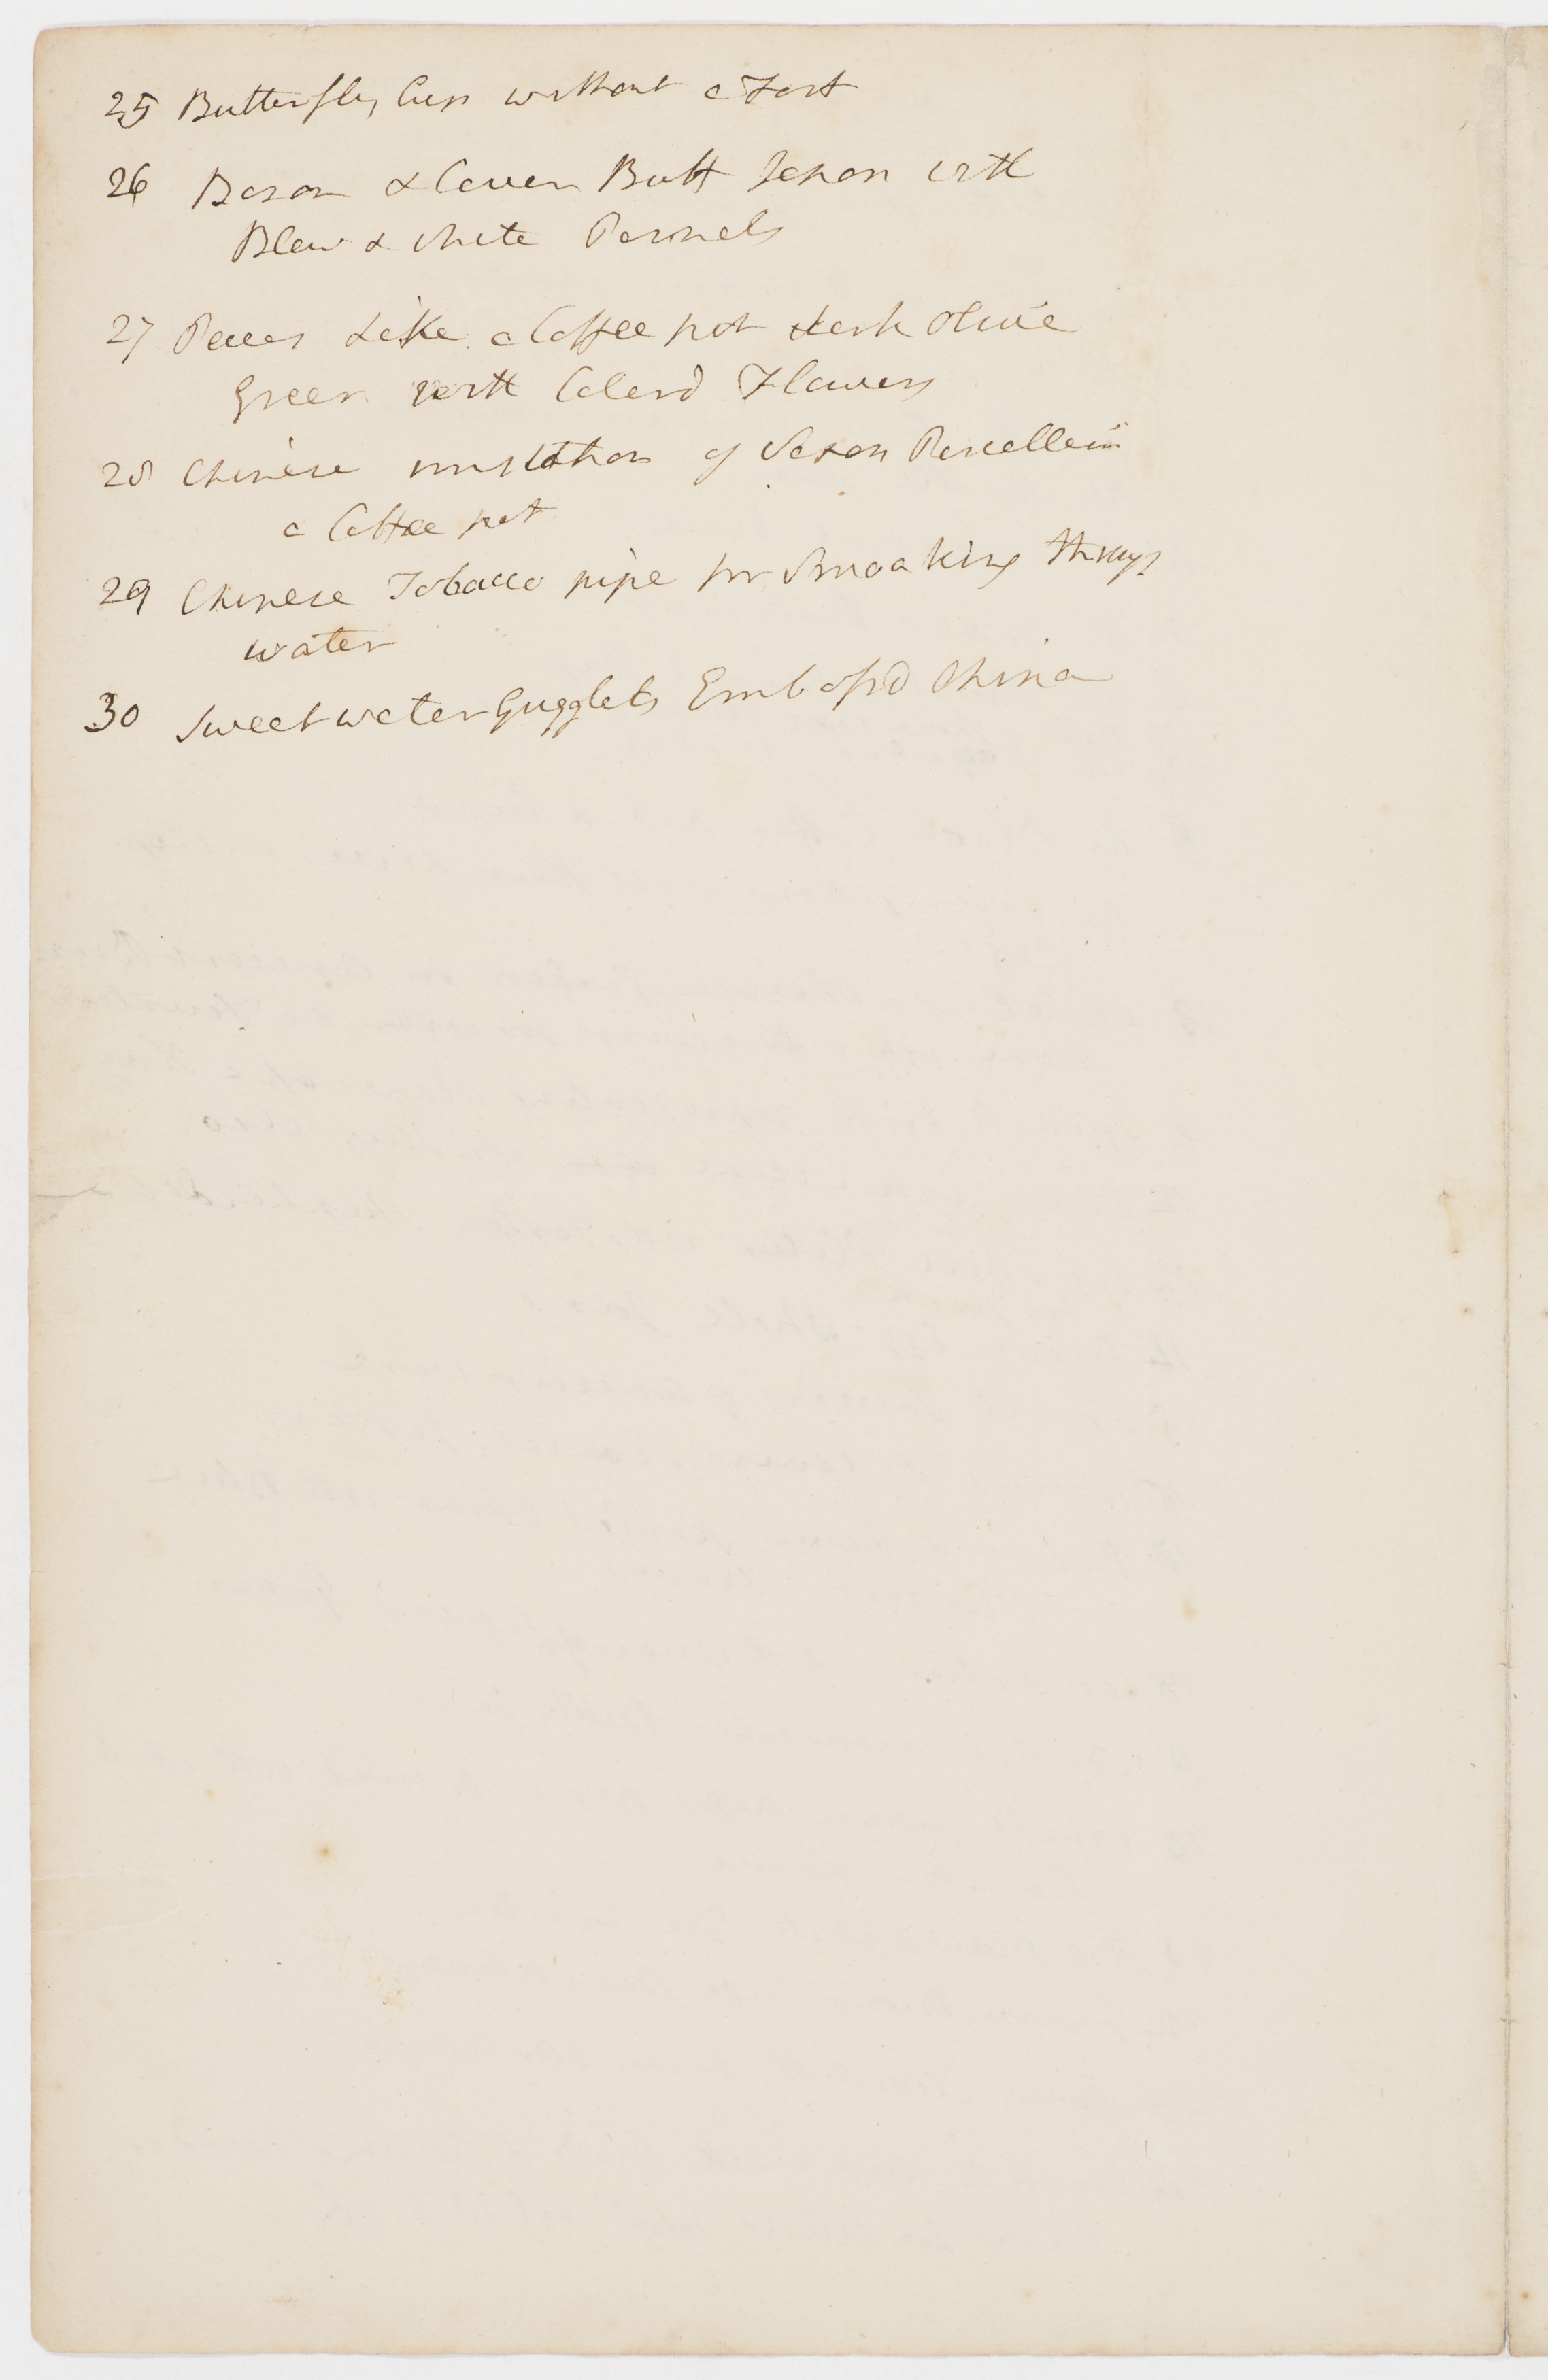 25 Butterfly Cup without a Foot
26 Bason & Cover Buff Japan with
Blew & white Pannels
27 Peices Like a Coffee pot dark Olive
Green with Colerd Flowers
28 Chinese imitation of Saxon Porcellein
a Coffee pot
29 Chinese Tobacco pipe for Smoaking through
water
30 Sweet water Gugglets Embossd China